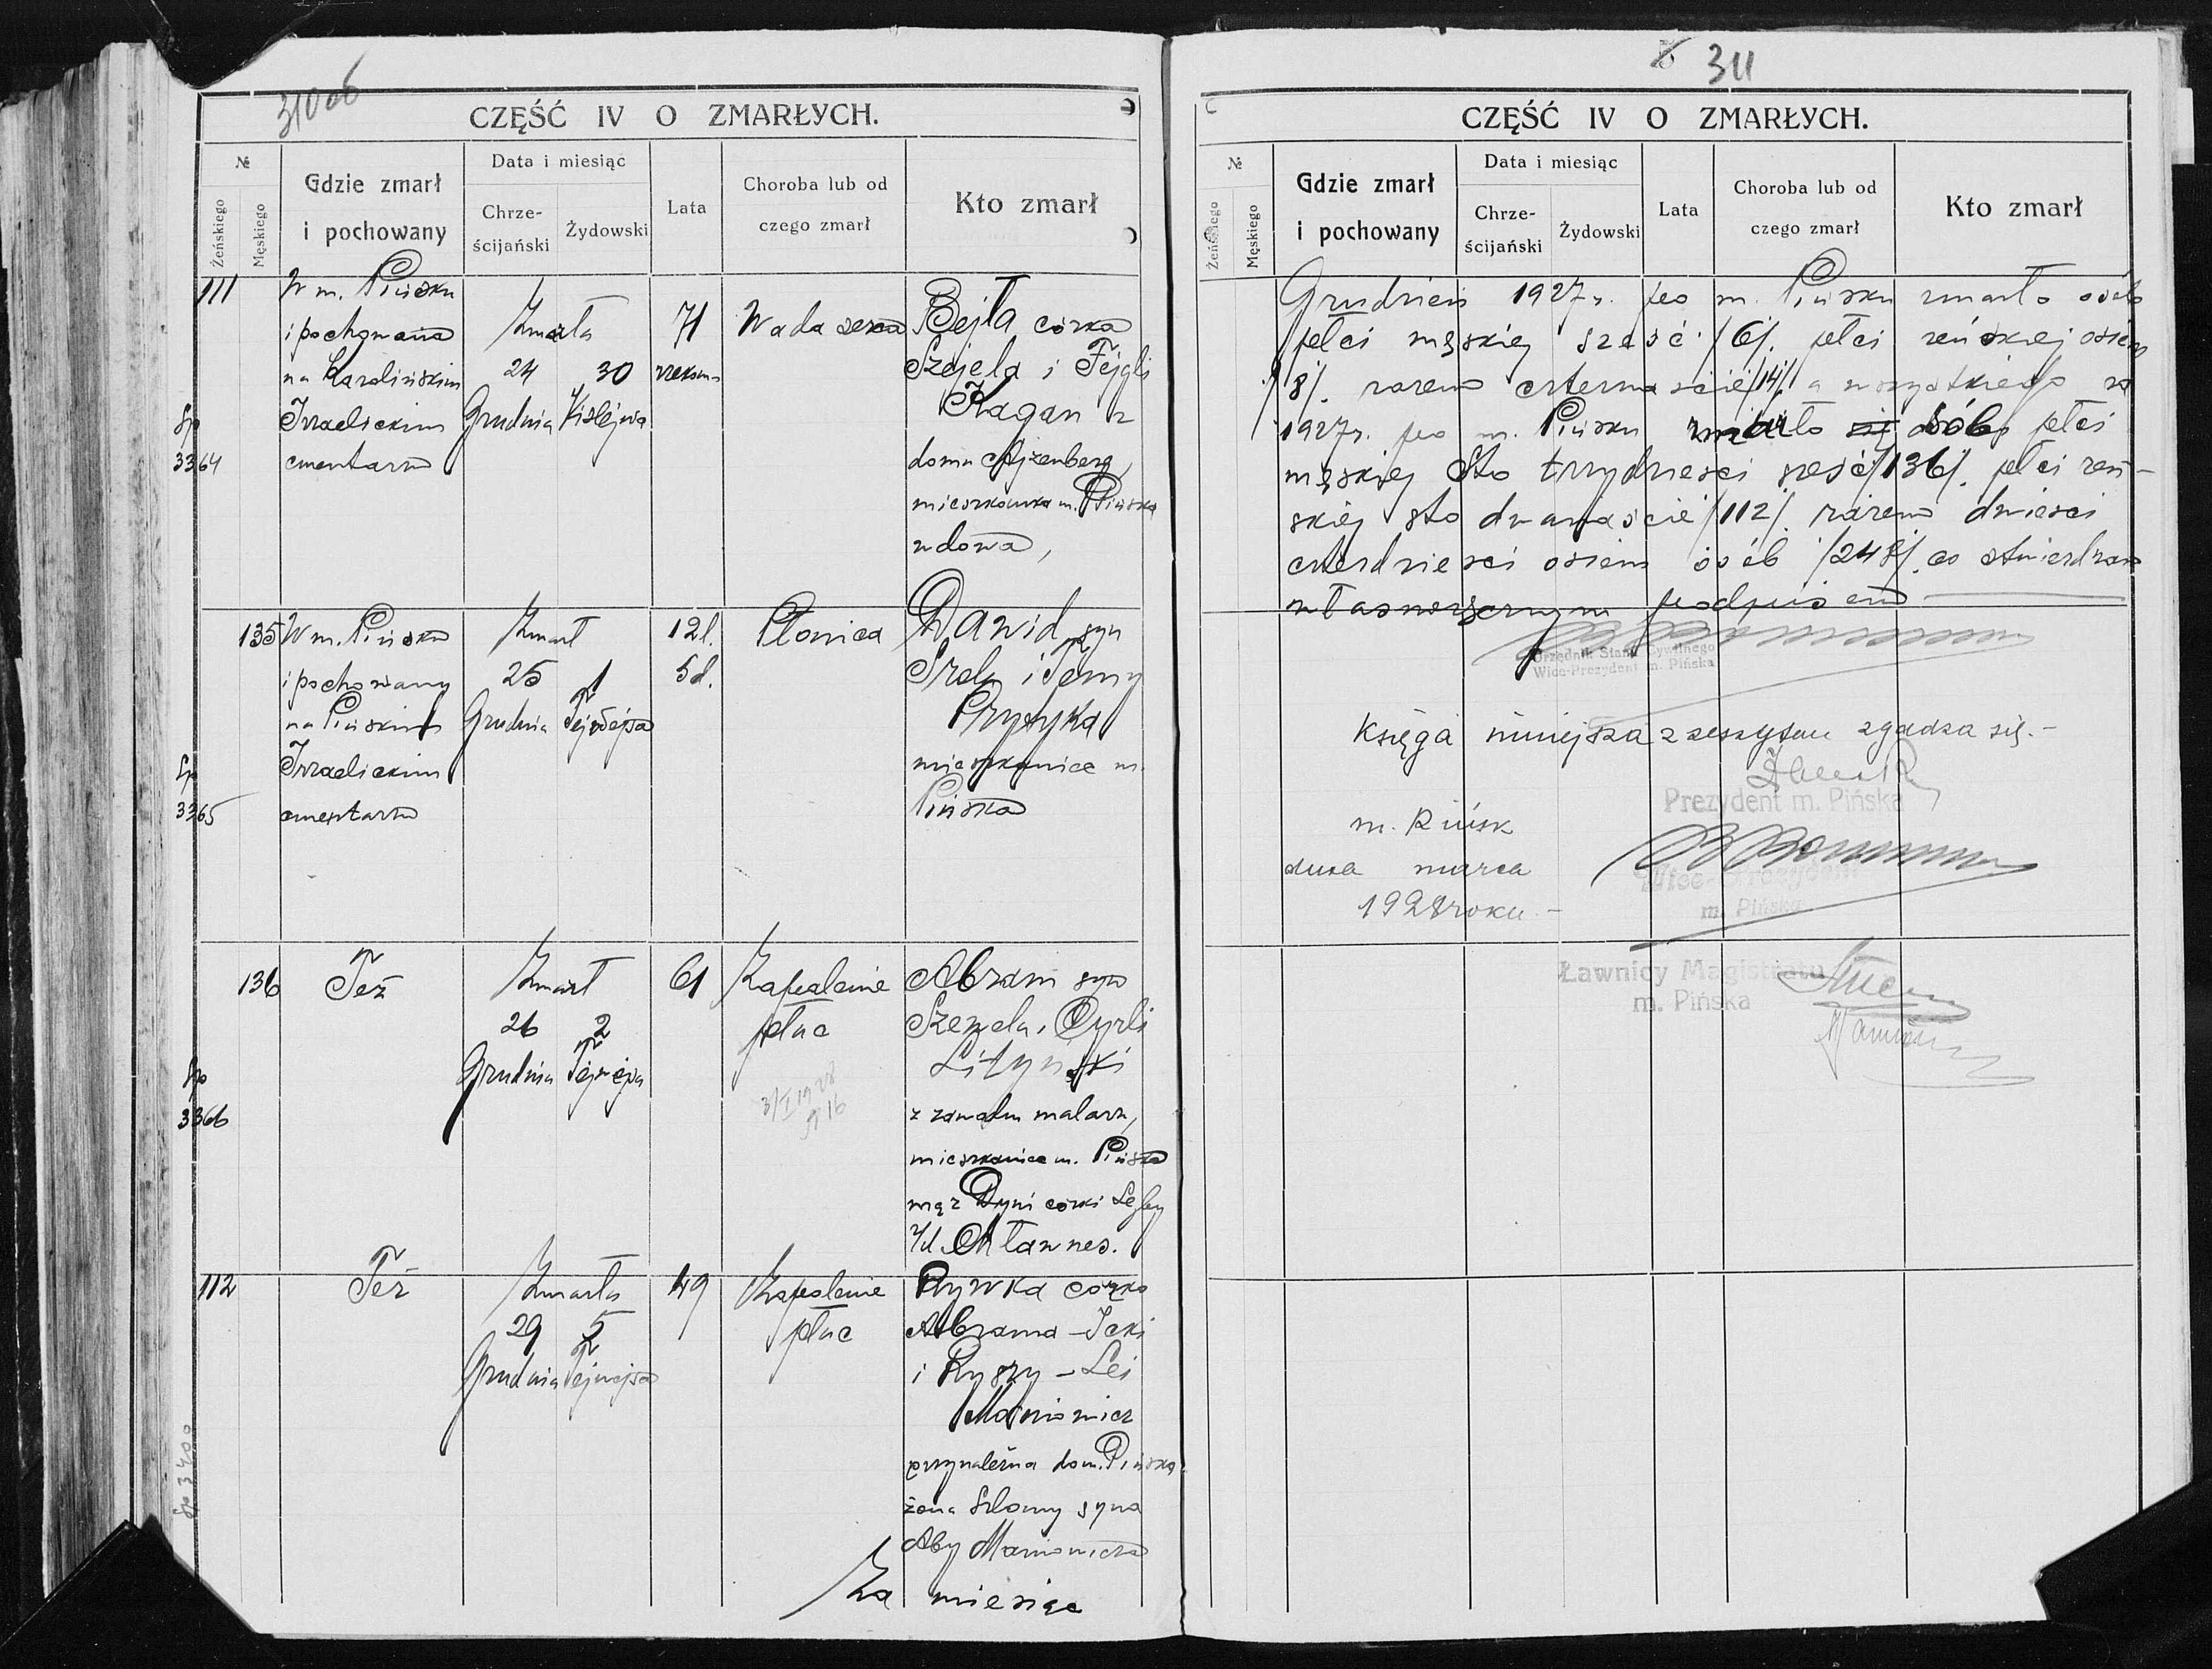 310 об
CZĘŚĆ IV O ZMARŁYCH.
№
Żeńskiego
Męskiego
Gdzie zmarł
i pochowany
Data i miesiąc
Chrze-
ścijański
Żydowski
Lata
Choroba lub od
czego zmarł
Kto zmarł
111
3364
W m. Pińsku
i pochowana
na Karolińskim
Izraelickim
cmentarzu
Zmarła
24 30
Grudnia Kislejwa
71
Wada serca
Bejla córka
Szejela i Fejgli
Kagan z
domu Ajzenberg,
mieszkanka m. Pińska
wdowa,
135
3365
W m. Pińsku
i pochowany
na Pińskim
Izraelickim
cmentarzu
Zmarł
25 1
Grudnia Tejwejsa
12 l.
5 d.
Płonica
Dawid syn
Srola i Temy
Pryzyka
mieszkaniec m.
Pińska
136
3366
Też
Zmarł
26 2
Grudnia Tejwejsa
61
Zapalenie
płuc
Abram syn
Szezela i Cyrli
Lityński
z zawodu malarz,
mieszkaniec m. Pińska
mąż Dyni córki Lejby
112
Sp 3400
Też
Zmarła
29 5
Grudnia Tejwejsa
49
Zapalenie
płuc
Rywka córka
Abrama-Icki
i Ryszy-Lei
Maniowicz
przynależna do m. Pińska
żona Szlomy syna
Aby Maniowicza
Za miesiąc
311
CZĘŚĆ IV O ZMARŁYCH.
№
Żeńskiego
Męskiego
Gdzie zmarł
i pochowany
Data i miesiąc
Chrze-
ścijański
Żydowski
Lata
Choroba lub od
czego zmarł
Kto zmarł
Grudzień 1927 r. po m. Pińsku zmarło osób
płci męskiej sześć /6/. płci żeńskiej osiem
/8/. razem czternaście /14/. a wszystkiego za
1927 r. po m. Pińsku zmarło osób płci
męskiej sto trzydzieści sześć /136/. płci żeń-
skiej sto dwanaście /112/. razem dwieści
czterdzieści osiem osób /248/. co stwierdzam
własnoręcznym podpisem
Urzędnik Stanu Cywilnego
Wice-Prezydent m. Pińska
Księga niniejsza z zeszytem zgadza się.-
Prezydent m. Pińska
m. Pińsk
dnia marca
1928 roku.-
Wice-Prezydent
m. Pińska
Ławnicy Magistratu
m. Pińska